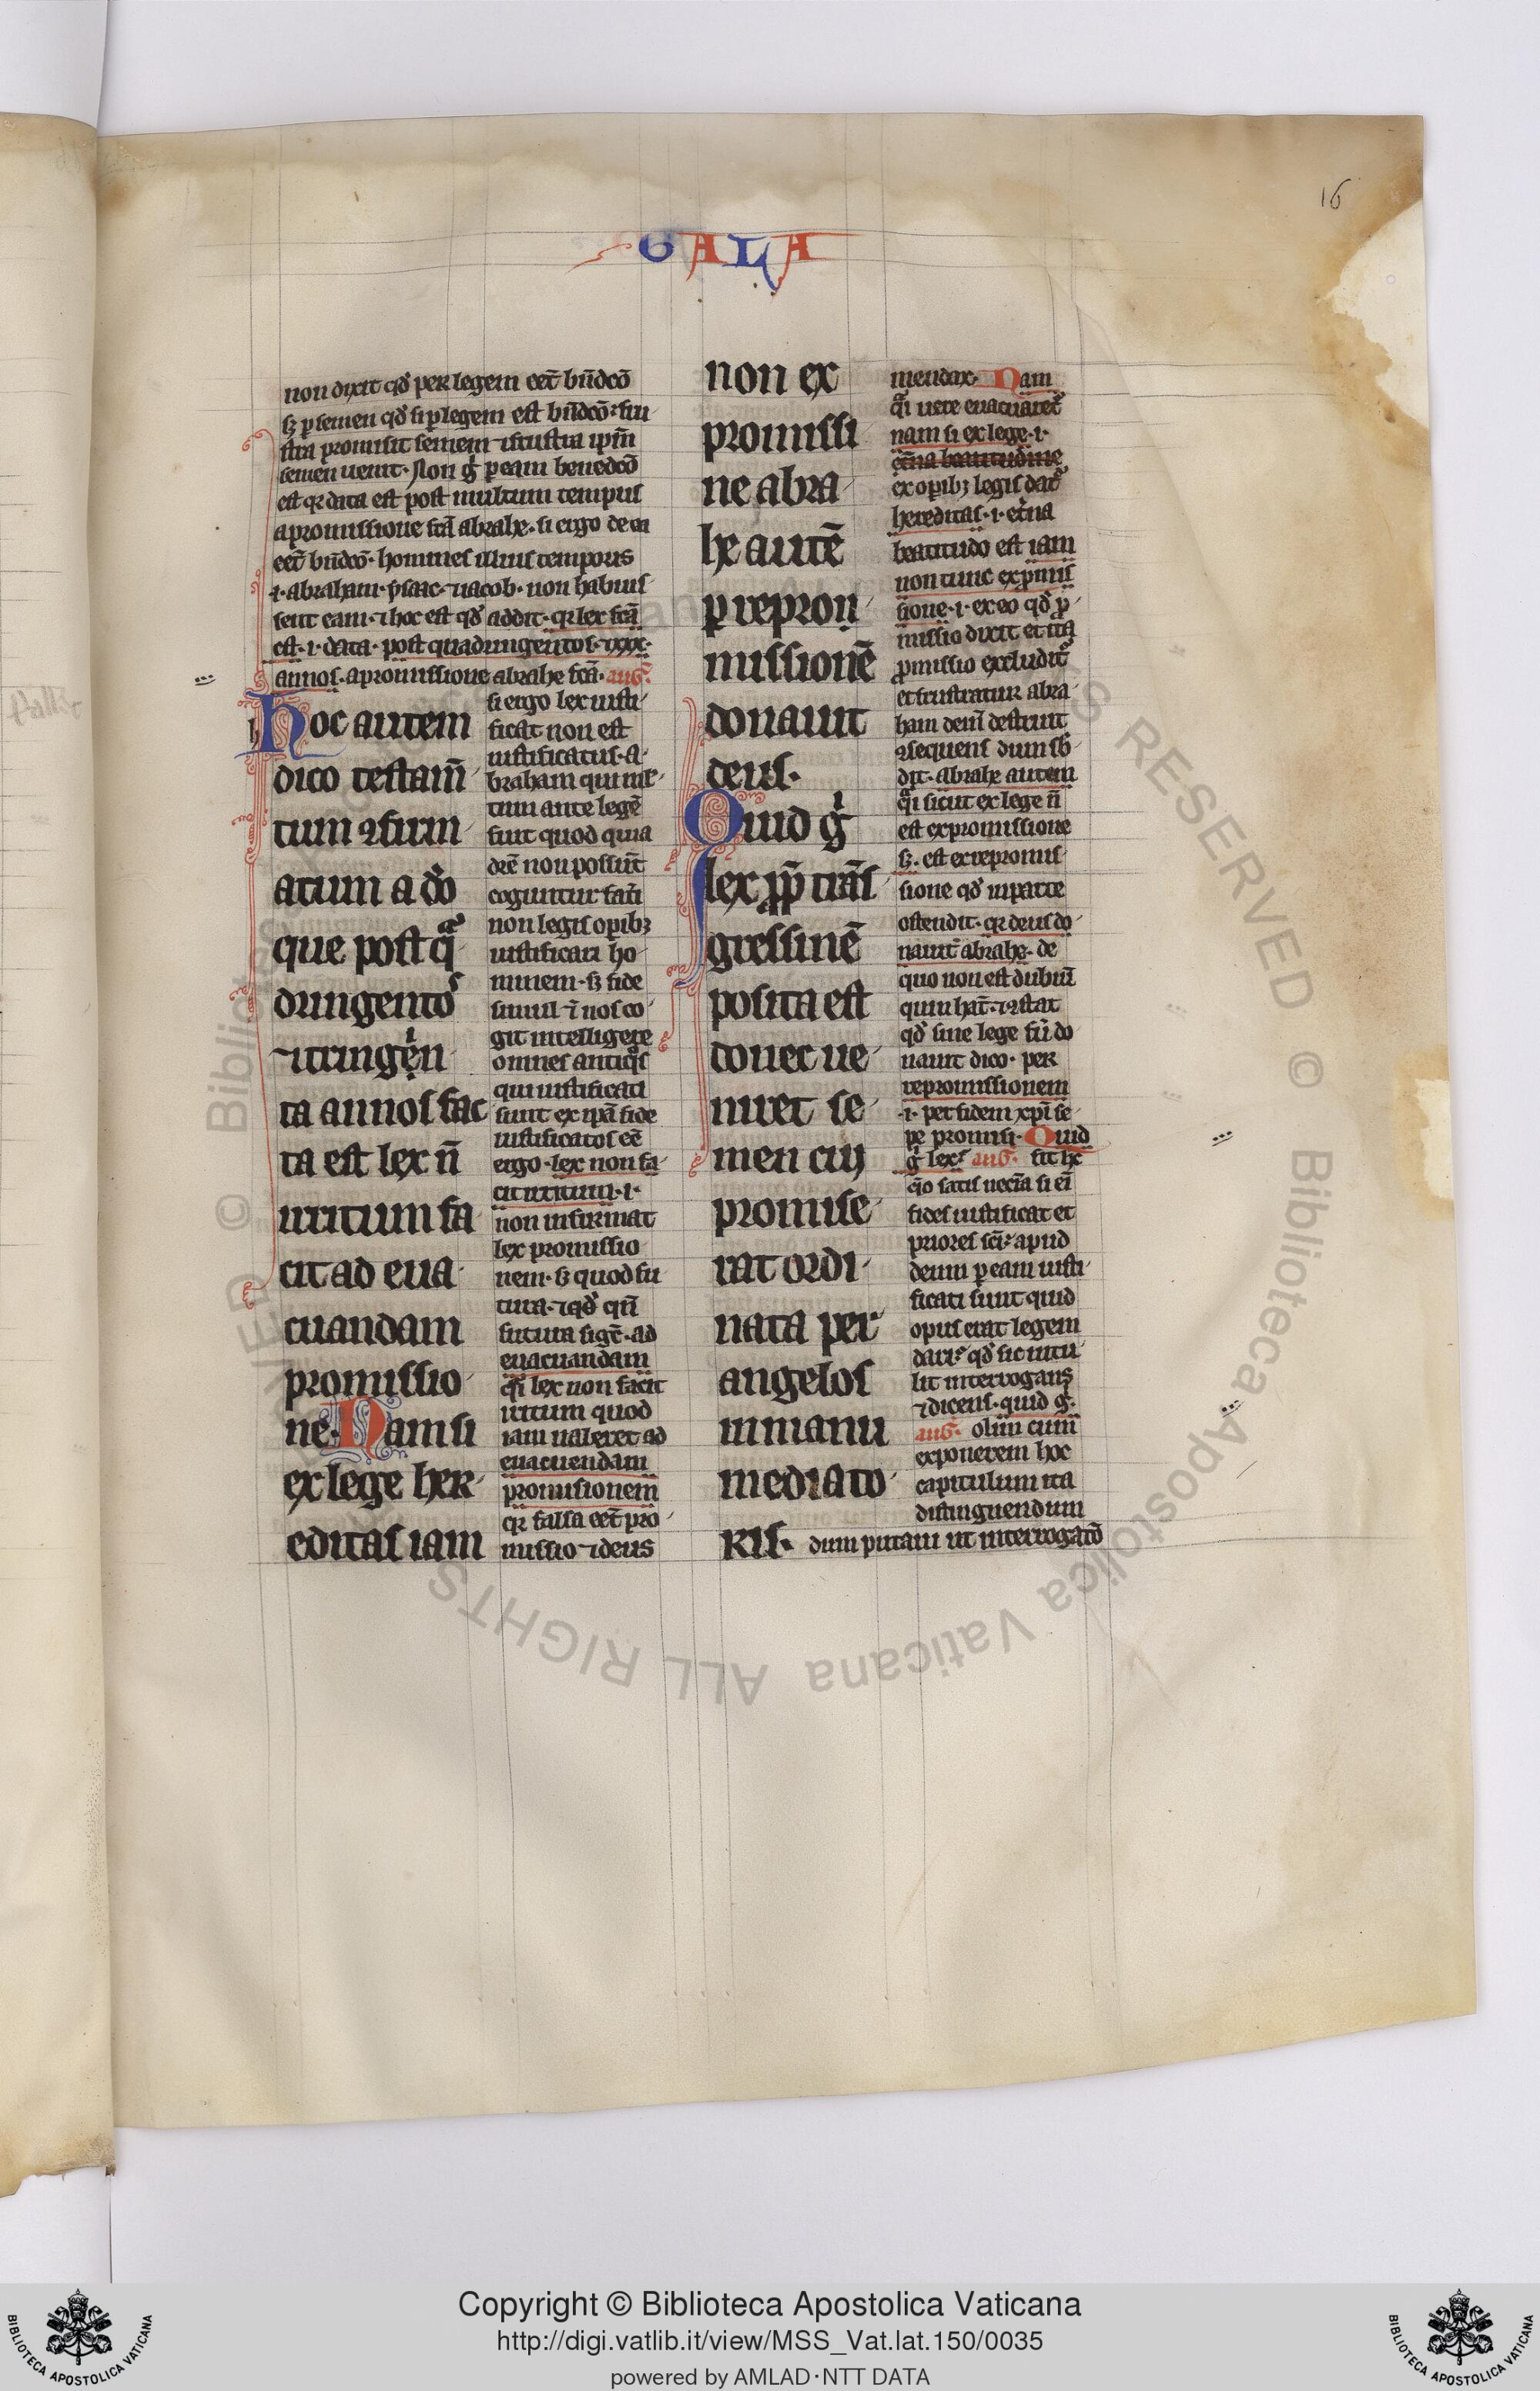 16
GALA
non dixit qd̛ per legem eēt bn̄dcō
sꝫ ꝑ semen qd̛ si ꝑ legem est bn̄dcō: fru
stra promisit semen ⁊ frustra ip̄m
semen uenit. Non gͥ ꝑ eam benedcō
est qꝛ data est post multum tempus
a promissione fcā abrahe. si ergo de ea
eēt bn̄dcō. homines illius temporis
.i. abraham. ysaac. ⁊ iacob. non habuis
sent eam. ⁊ hoc est qd̛ addit. qꝛ lex fcā
est. i. data. post quadringentos. ⁊ xxx.
annos. a promissione abrahe fcā. auḡ.
Hoc autem
dico testam̄
tum ꝯfirm
atum a do
que post qͣ
dringentos
⁊ trigen
ta annos fac
ta est lex n̄
irritum fa
cit ad eua
cuandam
promissio
ne. Nam si
ex lege her
editas iam
si ergo lex iusti
ficat non est
iustificatus. a
braham qui ml̄
tum ante legē
fuit quod quia
dicē non possūt
coguntur fat̄i
non legis opibꝫ
iustificari ho
minem. sꝫ fide
simul ⁊ nos co
git intelligere
omnes antiqͦs
qui iustificati
sunt ex ip̄a fide
iustificatos eē
ergo. lex non fa
cit irritum. i.
non infirmat
lex promissio
nem. sꝫ quod fu
tura. ⁊ qd̛ qn̄
futura sigt̄. ad
euacuandam
qͣsi lex non facit
irritum quod
iam ualeret ad
euacuendam
promisionem
qꝛ falsa eēt pro
missio ⁊ deus
non ex
promissi
ne abra
he autē
ꝑ repron
missionē
donauit
deus.
Quid gͥ
lex ꝓp̄ trās
gressinē
posita est
donec ue
niret se
men cui
promise
rat ordi
nata per
angelos
in manu
mediato
ris.
mendax. Nam
qͣi uere euacuaret᷑
nam si ex lege. i.
et̄na beatitudine
ex opibꝫ legis dat᷑
hereditas. i. et̄na
beatitudo est iam
non tunc ex ꝓmis
sione. i. ex eo qd̛ ꝓ
missio dixit et ita
ꝓmissio excludit᷑
et frustratur abra
ham
ꝯsequens dum sb̄
dit. abrahe autem
qͣi sicut ex lege n̄
est ex promissione
sꝫ. est ex repromis
sione qd̛ in parte
ostendit. qꝛ deus do
nauit abrahe. de
quo non est dubiū
quin hat̄. ⁊ ꝯstat
qd̛ sine lege fu̅ do
nauit dico. per
repromissionem
.i. per fidem xp̄i se
pe promisi. Quid
gͥ lex? auḡ. fit hc̄
qō satis necīa si ei̅
fides iustificat et
priores sci̅: apud
deum ꝑ eam iusti
ficati sunt quid
opus erat legem
dari? qd̛ sic intu
lit interrogans
⁊ dicens. quid gͥ.
auḡ. olim cum
exponerem hoc
capitulum ita
distinguendum
dum putaui ut interrogatō
Copyright © Biblioteca Apostolica Vaticana
http://digi.vatlib.it/view/MSS_Vat.lat.150/0035
powered by AMLAD·NTT DATA
BIBLIOTECA APOSTOLICA VATICANA
BIBLIOTECA APOSTOLICA VATICANA
© Biblioteca Apostolica Vaticana ALL RIGHTS RESERVED